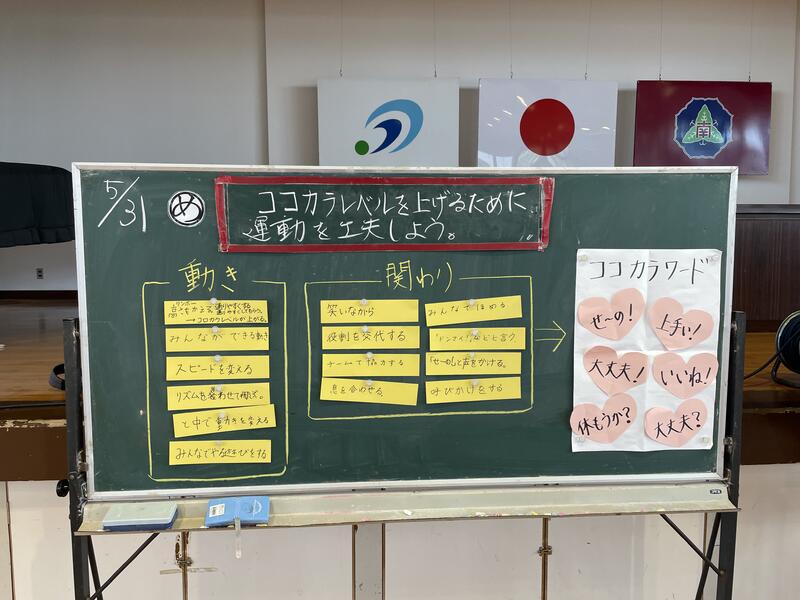 南
5/31
め
ココカラレベルを上げるために
運動を工夫しよう。
動き
→ココカラレベルが上がる。
みんなができる動き
スピードを変える
リズムを変わせて跳ぶ。
と中で動きを変える
みんなでやる遊びをする
関わり
笑いながら
役割を交代する
チームで協力する
息を合わせる。
みんなでほめる
「ドンマイ」などと言う。
「せーの」と声をかける。
呼びかけをする
ココカラワード
せ〜の!
上手い!
大丈夫!
いいね!
休もうか?
大丈夫?